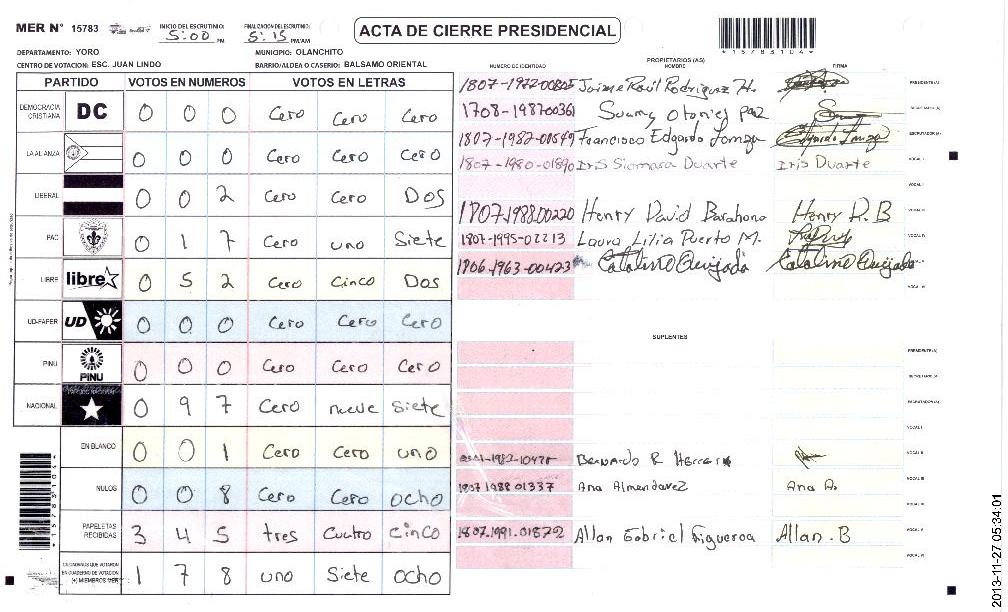 MER N° 15783 INICIO DEL ESCRUTINIO: 5:00 PM FINALIZACION DEL ESCRUTINIO: 5:15 PM/AM ACTA DE CIERRE PRESIDENCIAL
15783104
DEPARTAMENTO: YORO MUNICIPIO: OLANCHITO
CENTRO DE VOTACION: ESC. JUAN LINDO BARRIO/ALDEA O CASERIO: BALSAMO ORIENTAL
PARTIDO VOTOS EN NUMEROS VOTOS EN LETRAS
DEMOCRACIA CRISTIANA DC 0 0 0 Cero Cero Cero
LA ALIANZA 0 0 0 Cero Cero Cero
LIBERAL 0 0 2 Cero Cero Dos
PAC 0 1 7 Cero uno Siete
LIBRE libre 0 5 2 Cero Cinco Dos
UD-FAPER UD 0 0 0 Cero Cero Cero
PINU PINU 0 0 0 Cero Cero Cero
NACIONAL 0 9 7 Cero nueve Siete
EN BLANCO 0 0 1 Cero Cero uno
NULOS 0 0 8 Cero Cero ocho
PAPELETAS RECIBIDAS 3 4 5 tres Cuatro Cinco
CIUDADANOS QUE VOTARON EN CUADERNO DE VOTACION (+) MIEMBROS MER 1 7 8 uno Siete ocho
PROPIETARIOS (AS)
NUMERO DE IDENTIDAD NOMBRE FIRMA
Jaime Raúl Rodriguez H. PRESIDENTE(A)
1708-1987-00361 Suamy otoniel paz SECRETARIO(A)
1807-1982-00549 Francisco Edgardo Edgardo ESCRUTADOR(A)
1807-1980-01890 Iris Siomara Duarte Iris Duarte VOCAL I
VOCAL II
1807.1988.00220 Henry David Barahona Henry D.B VOCAL III
1807-1995-02213 Laura Lilia Puerto M. VOCAL IV
1806.1963-00423 Catalino Quijada Catalino Quijada VOCAL V
VOCAL VI
SUPLENTES
PRESIDENTE(A)
SECRETARIO(A)
ESCRUTADOR(A)
VOCAL I
Bernardo R Herrera VOCAL II
1807 1988 01337 Ana Almendarez Ana A. VOCAL III
VOCAL IV
1807.1991.01872 Allan Gabriel Figueroa Allan.B VOCAL V
VOCAL VI
15783104
2013-11-27 05:34:01